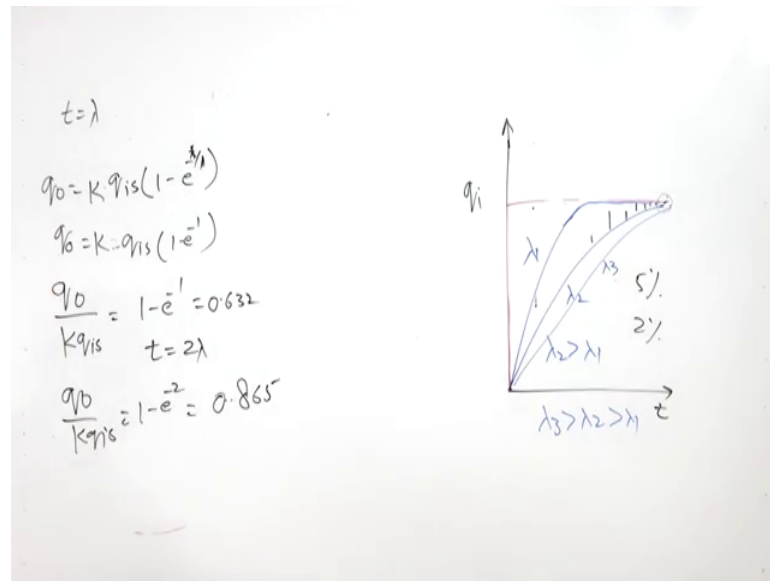 t=λ
q₀=K.qᵢₛ(1-e^(-λ/λ))
q₀=K.qᵢₛ(1-e⁻¹)
q₀/Kqᵢₛ = 1-e⁻¹ = 0.632
t=2λ
q₀/Kqᵢₛ = 1-e⁻² = 0.865
qᵢ
λ₁
λ₂
λ₃
5%
2%
λ₂>λ₁
t
λ₃>λ₂>λ₁